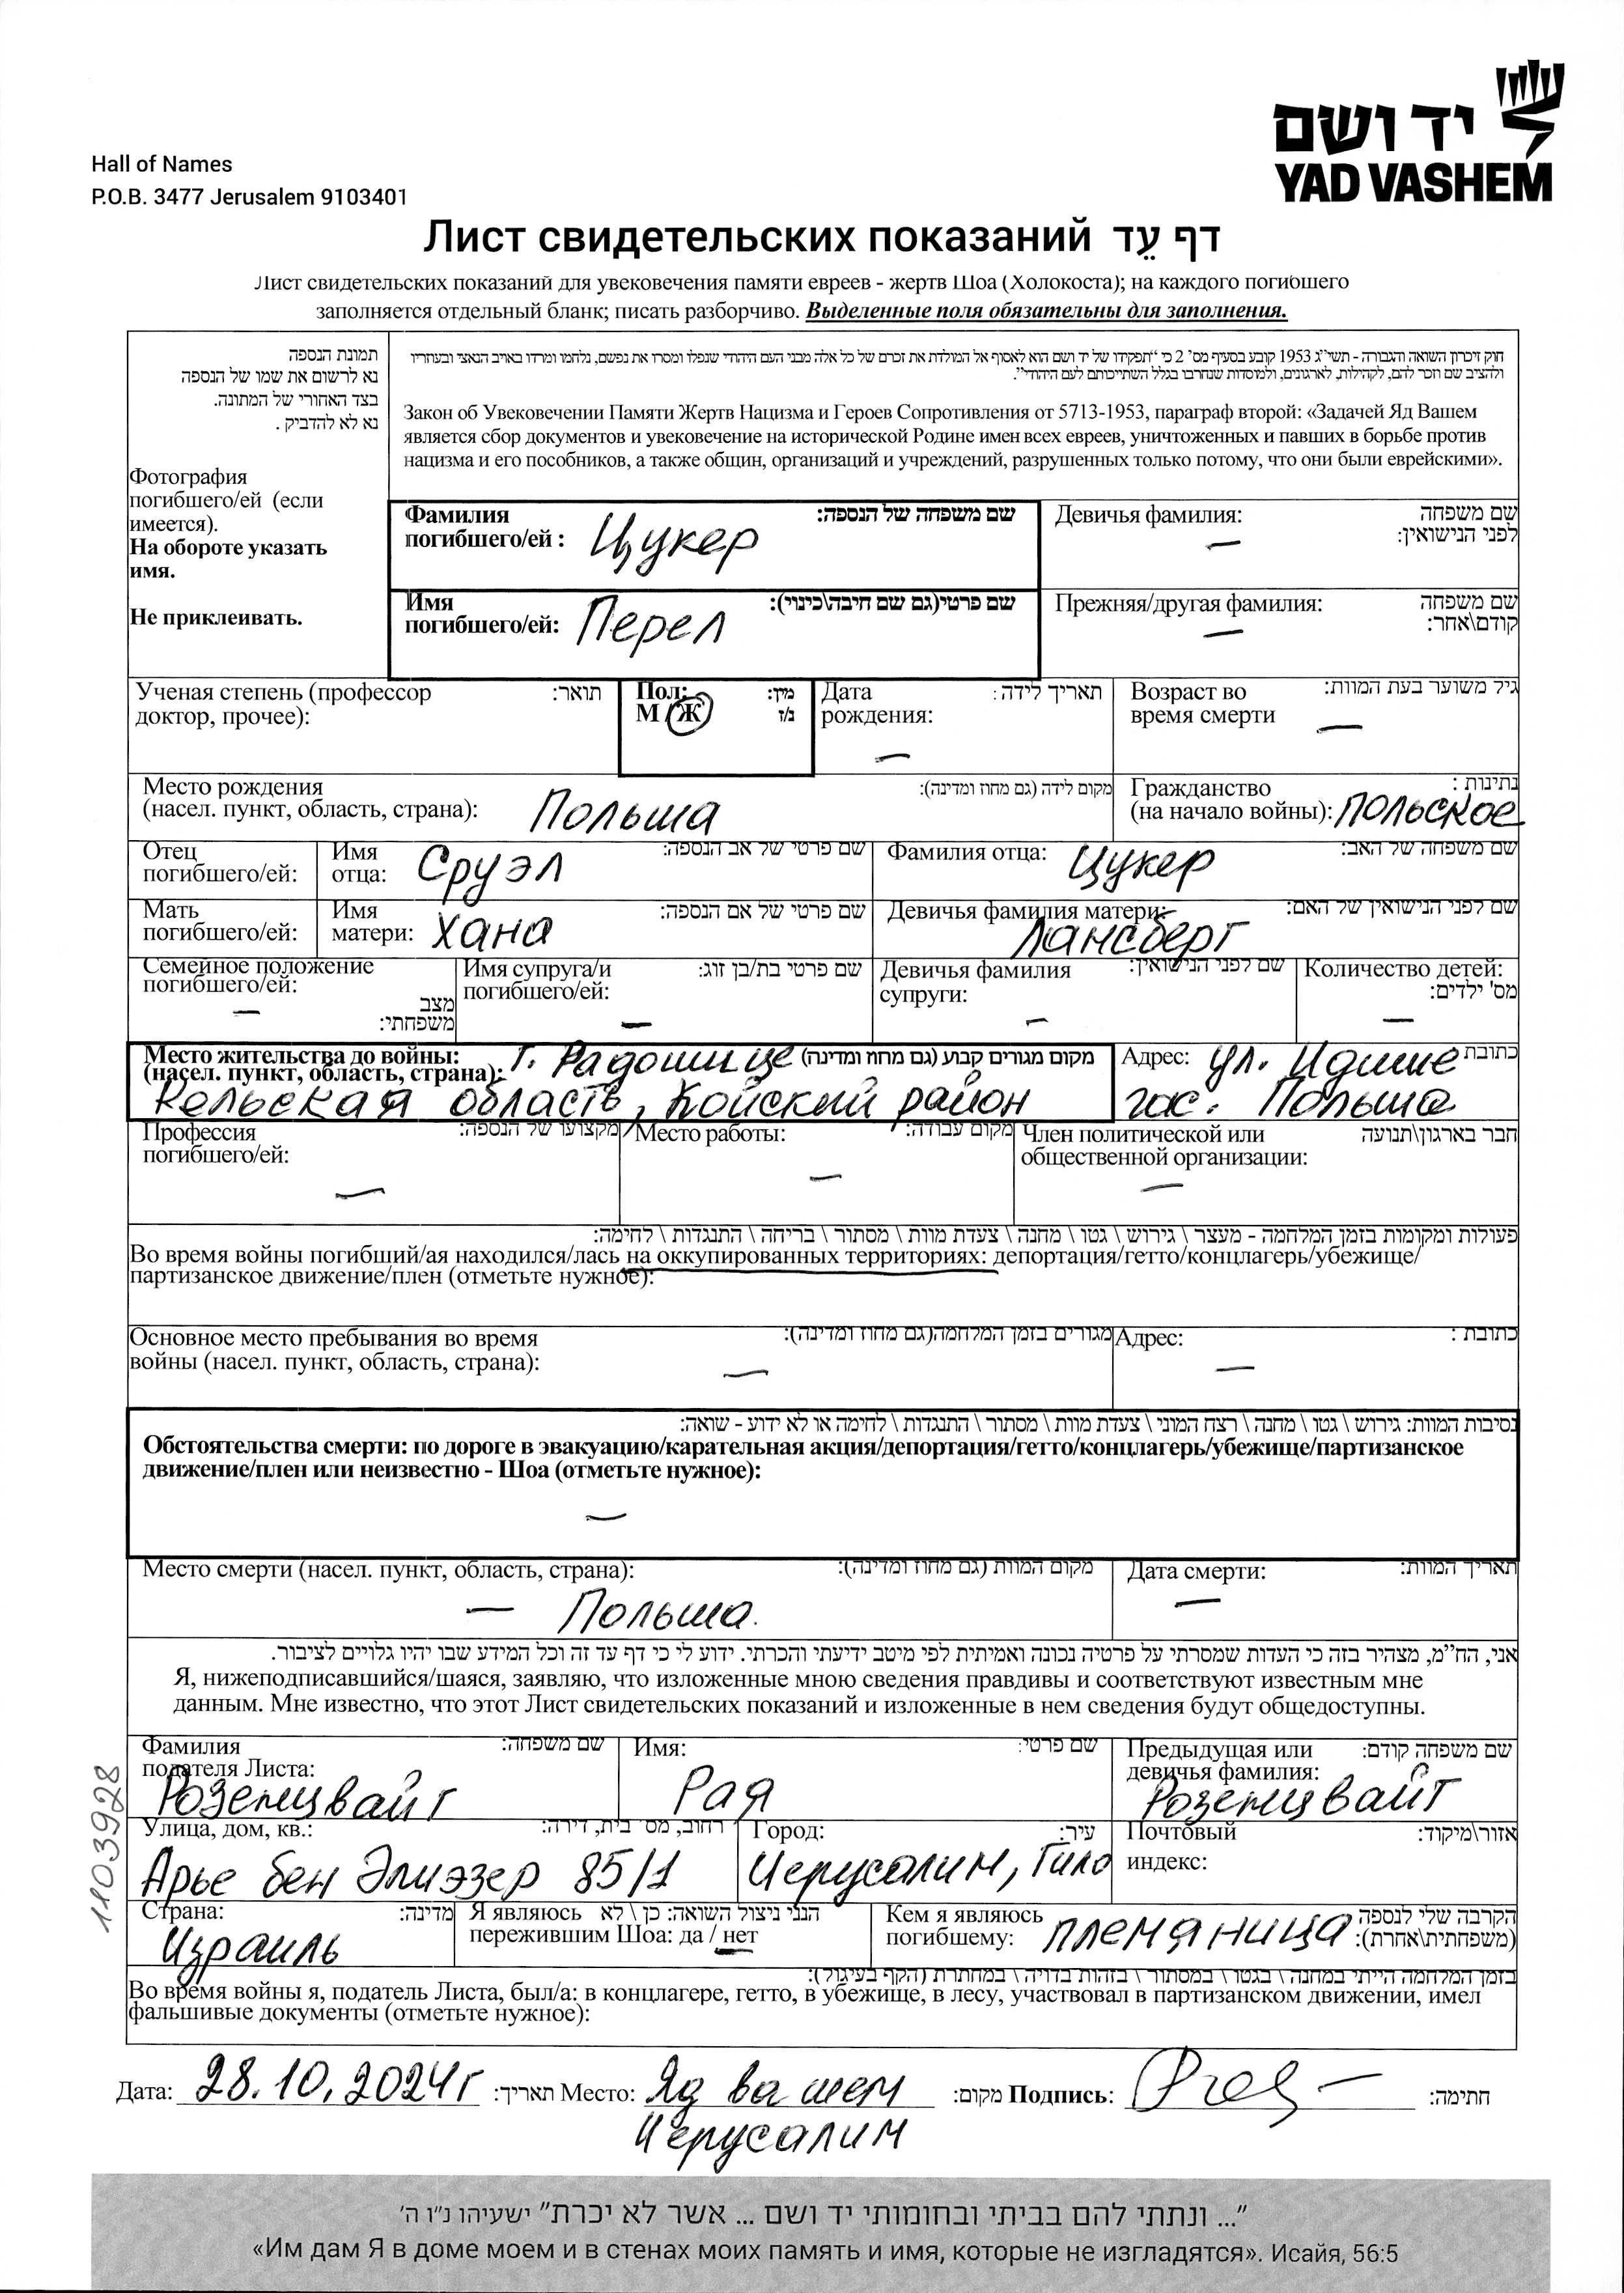 יד ושם
YAD VASHEM
Hall of Names
P.O.B. 3477 Jerusalem 9103401
Лист свидетельских показаний דף עֵד
Лист свидетельских показаний для увековечения памяти евреев - жертв Шоа (Холокоста); на каждого погибшего
заполняется отдельный бланк; писать разборчиво. Выделенные поля обязательны для заполнения.
תמונת הנספה
נא לרשום את שמו של הנספה
בצד האחורי של המתונה.
נא לא להדביק .
Фотография
погибшего/ей (если
имеется).
На обороте указать
имя.
Не приклеивать.
חוק זיכרון השואה והגבורה - תשי"ג 1953 קובע בסעיף מס' 2 כי "תפקידו של יד ושם הוא לאסוף אל המולדת את זכרם של כל אלה מבני העם היהודי שנפלו ומסרו את נפשם, נלחמו ומרדו באויב הנאצי ובעוזריו
ולהציב שם וזכר להם, לקהילות, לארגונים, ולמוסדות שנחרבו בגלל השתייכותם לעם היהודי".
Закон об Увековечении Памяти Жертв Нацизма и Героев Сопротивления от 5713-1953, параграф второй: «Задачей Яд Вашем
является сбор документов и увековечение на исторической Родине имен всех евреев, уничтоженных и павших в борьбе против
нацизма и его пособников, а также общин, организаций и учреждений, разрушенных только потому, что они были еврейскими».
Фамилия погибшего/ей : Цукер שם משפחה של הנספה:
Девичья фамилия: — שם משפחה לפני הנישואין:
Имя погибшего/ей: Перел שם פרטי(גם שם חיבה\כינוי):
Прежняя/другая фамилия: — שם משפחה קודם\אחר:
Ученая степень (профессор доктор, прочее): תואר:
Пол: М / Ж מין: ז/נ
Дата рождения: — תאריך לידה :
Возраст во время смерти — גיל משוער בעת המוות:
Место рождения (насел. пункт, область, страна): Польша מקום לידה (גם מחוז ומדינה):
Гражданство (на начало войны): польское נתינות :
Отец погибшего/ей: Имя отца: Сруэл שם פרטי של אב הנספה:
Фамилия отца: Цукер שם משפחה של האב:
Мать погибшего/ей: Имя матери: Хана שם פרטי של אם הנספה:
Девичья фамилия матери: Лансберг שם לפני הנישואין של האם:
Семейное положение погибшего/ей: — מצב משפחתי:
Имя супруга/и погибшего/ей: — שם פרטי בת/בן זוג:
Девичья фамилия супруги: — שם לפני הנישואין:
Количество детей: — מס' ילדים:
Место жительства до войны: г. Радошице מקום מגורים קבוע (גם מחוז ומדינה)
(насел. пункт, область, страна): Кельская область, Койский район
Адрес: ул. Идшие כתובת
гас. Польша
Профессия погибшего/ей: — מקצועו של הנספה:
Место работы: — מקום עבודה:
Член политической или общественной организации: — חבר בארגון\תנועה
פעולות ומקומות בזמן המלחמה - מעצר \ גירוש \ גטו \ מחנה \ צעדת מוות \ מסתור \ בריחה \ התנגדות \ לחימה:
Во время войны погибший/ая находился/лась на оккупированных территориях: депортация/гетто/концлагерь/убежище/
партизанское движение/плен (отметьте нужное):
Основное место пребывания во время войны (насел. пункт, область, страна): — מגורים בזמן המלחמה(גם מחוז ומדינה):
Адрес: — כתובת :
נסיבות המוות: גירוש \ גטו \ מחנה \ רצח המוני \ צעדת מוות \ מסתור \ התנגדות \ לחימה או לא ידוע - שואה:
Обстоятельства смерти: по дороге в эвакуацию/карательная акция/депортация/гетто/концлагерь/убежище/партизанское
движение/плен или неизвестно - Шоа (отметьте нужное):
—
Место смерти (насел. пункт, область, страна): מקום המוות (גם מחוז ומדינה):
— Польша.
Дата смерти: — תאריך המוות:
אני, הח"מ, מצהיר בזה כי העדות שמסרתי על פרטיה נכונה ואמיתית לפי מיטב ידיעתי והכרתי. ידוע לי כי דף עד זה וכל המידע שבו יהיו גלויים לציבור.
Я, нижеподписавшийся/шаяся, заявляю, что изложенные мною сведения правдивы и соответствуют известным мне
данным. Мне известно, что этот Лист свидетельских показаний и изложенные в нем сведения будут общедоступны.
Фамилия подателя Листа: Розенцвайг שם משפחה:
Имя: Рая שם פרטי:
Предыдущая или девичья фамилия: Розенцвайг שם משפחה קודם:
Улица, дом, кв.: Арье бен Элиэзер 85/1 רחוב, מס' בית, דירה:
Город: Иерусалим, Гило עיר:
Почтовый индекс: אזור\מיקוד:
Страна: Израиль מדינה:
Я являюсь пережившим Шоа: да / нет הנני ניצול השואה: כן \ לא
Кем я являюсь погибшему: племяница הקרבה שלי לנספה (משפחתית\אחרת):
בזמן המלחמה הייתי במחנה \ בגטו \ במסתור \ בזהות בדויה \ במחתרת (הקף בעיגול):
Во время войны я, податель Листа, был/а: в концлагере, гетто, в убежище, в лесу, участвовал в партизанском движении, имел
фальшивые документы (отметьте нужное):
1103928
Дата: 28.10.2024г תאריך: Место: Яд ва шем מקום: Подпись: חתימה:
Иерусалим
"... ונתתי להם בביתי ובחומותי יד ושם ... אשר לא יכרת" ישעיהו נ"ו ה'
«Им дам Я в доме моем и в стенах моих память и имя, которые не изгладятся». Исайя, 56:5